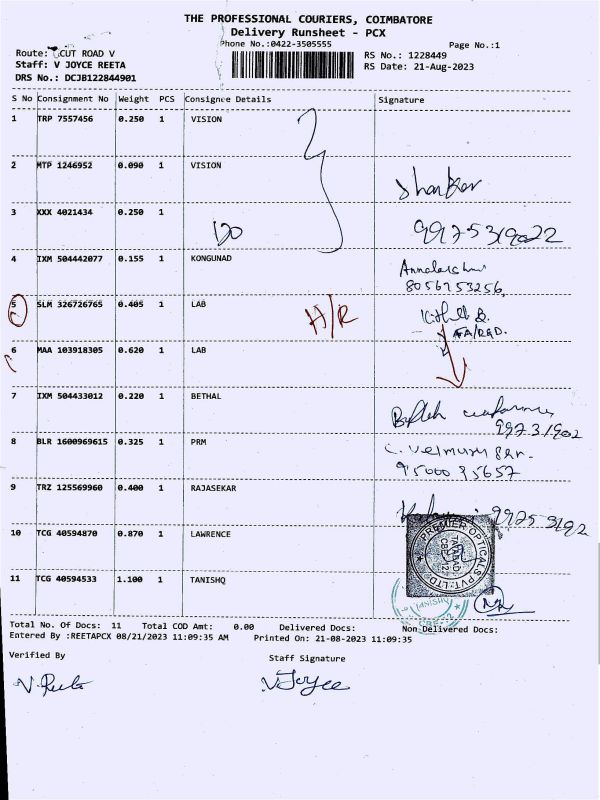 THE PROFESSIONAL COURIERS, COIMBATORE
Delivery Runsheet - PCX
Phone No.:0422-3505555
Page No.:1
Route: CUT ROAD V
RS No.: 1228449
Staff: V JOYCE REETA
RS Date: 21-Aug-2023
DRS No.: DCJB122844901
S No Consignment No Weight PCS Consignee Details Signature
1 TRP 7557456 0.250 1 VISION
2 MTP 1246952 0.090 1 VISION
3 XXX 4021434 0.250 1
4 IXM 504442077 0.155 1 KONGUNAD
8056753256
5 SLM 326726765 0.405 1 LAB H/R
6 MAA 103918305 0.620 1 LAB
7 IXM 504433012 0.220 1 BETHAL
8 BLR 1600969615 0.325 1 PRM
95000 95657
9 TRZ 125569960 0.400 1 RAJASEKAR
10 TCG 40594870 0.870 1 LAWRENCE
PREMIER OPTICALS PVT. LTD.
TATABAD
CBE-12
11 TCG 40594533 1.100 1 TANISHQ
TANISHQ
Total No. Of Docs: 11 Total COD Amt: 0.00 Delivered Docs: Non Delivered Docs:
Entered By :REETAPCX 08/21/2023 11:09:35 AM Printed On: 21-08-2023 11:09:35
Verified By Staff Signature
V. Reeta V Joyce